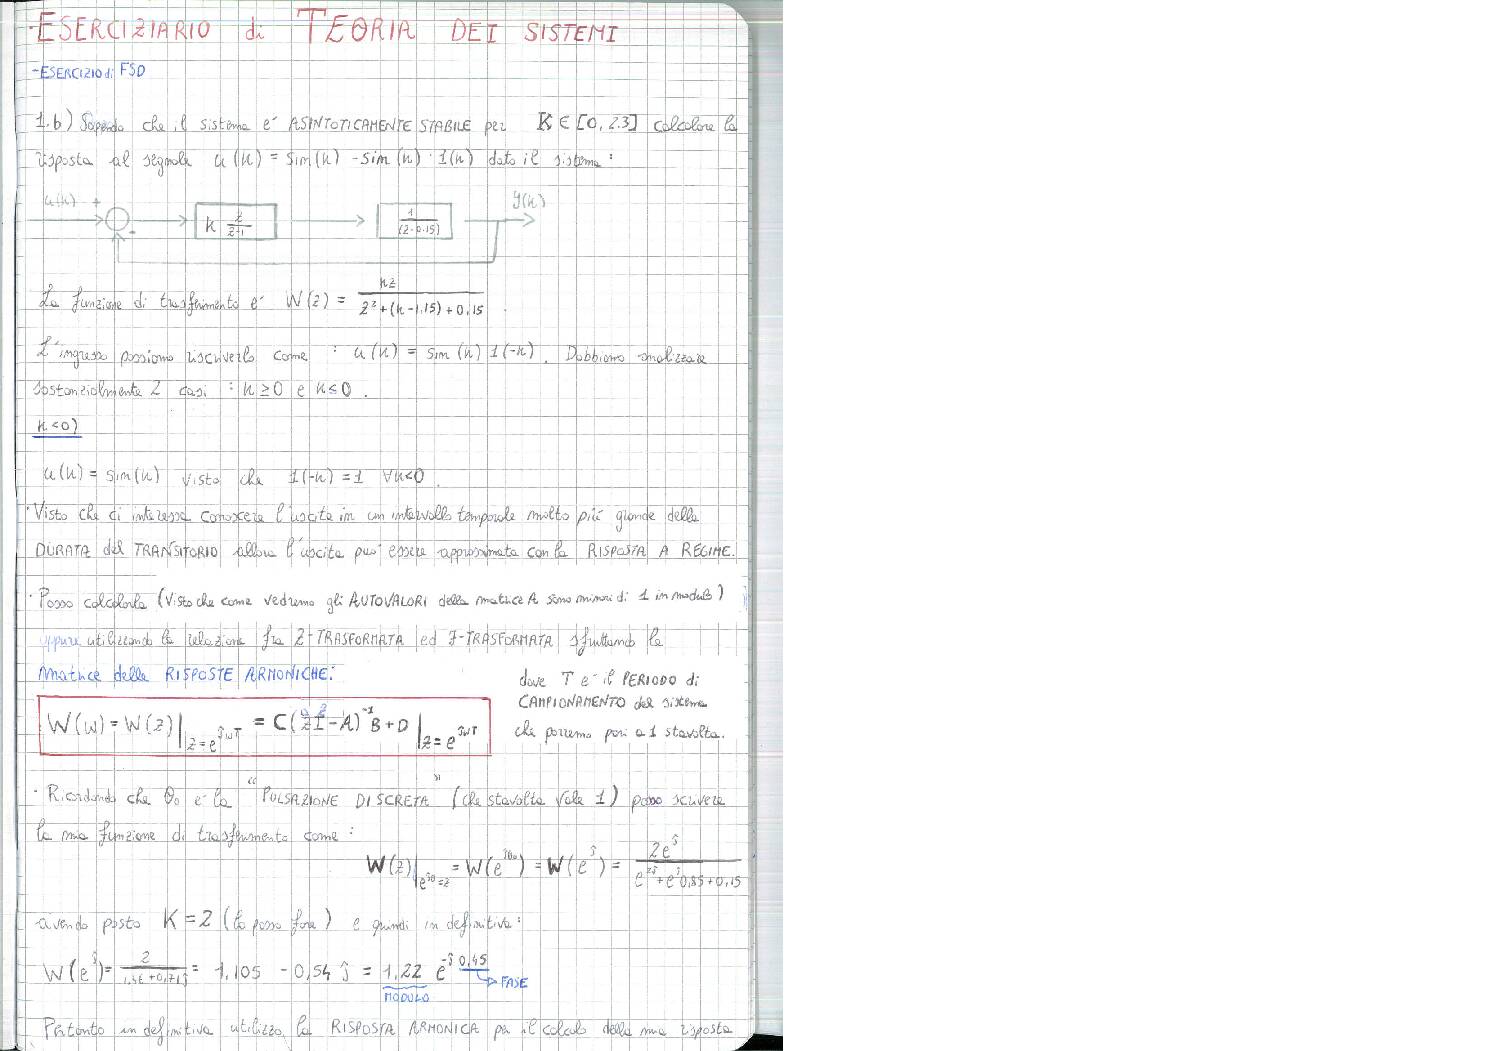 ESERCIZIARIO di TEORIA DEI SISTEMI
-ESERCIZIO di FSD
1.b) Sapendo che il sistema e' ASINTOTICAMENTE STABILE per K ∈ [0, 2.3] calcolare la
risposta al segnale u(k) = sin(k) - sin(k) · 1(k) dato il sistema:
u(k) + - k z/(z-1) 1/(z-0.15) y(k)
La funzione di trasferimento e' W(z) = kz / (z² + (k-1.15) + 0.15) .
L'ingresso possiamo riscriverlo come : u(k) = sin(k) 1(-k) . Dobbiamo analizzare
sostanzialmente 2 casi : k ≥ 0 e k ≤ 0 .
k<0)
u(k) = sin(k) visto che 1(-k) = 1 ∀k<0 .
· Visto che ci interessa conoscere l'uscita in un intervallo temporale molto più grande della
DURATA del TRANSITORIO allora l'uscita puo' essere approssimata con la RISPOSTA A REGIME.
· Posso calcolarla (visto che come vedremo gli AUTOVALORI della matrice A sono minori di 1 in modulo)
oppure utilizzando la relazione fra Z-TRASFORMATA ed F-TRASFORMATA sfruttando la
matrice delle RISPOSTE ARMONICHE:
W(w) = W(z)|z=e^jwT = C(zI-A)^-1 B + D |z=e^jwT
dove T e' il PERIODO di
CAMPIONAMENTO del sistema
che porremo pari a 1 stavolta.
· Ricordando che θ₀ e' la "PULSAZIONE DISCRETA" (che stavolta vale 1) posso scrivere
la mia funzione di trasferimento come :
W(z)|e^jθ=z = W(e^jθ₀) = W(e^j) = 2e^j / (e^2j + e^j 0,85 + 0,15)
avendo posto K = 2 (lo posso fare) e quindi in definitiva:
W(e^j) = 2 / = 1,105 - 0,54 j = 1,22 e^-j0,45
MODULO FASE
Pertanto in definitiva utilizzo la RISPOSTA ARMONICA per il calcolo della mia risposta